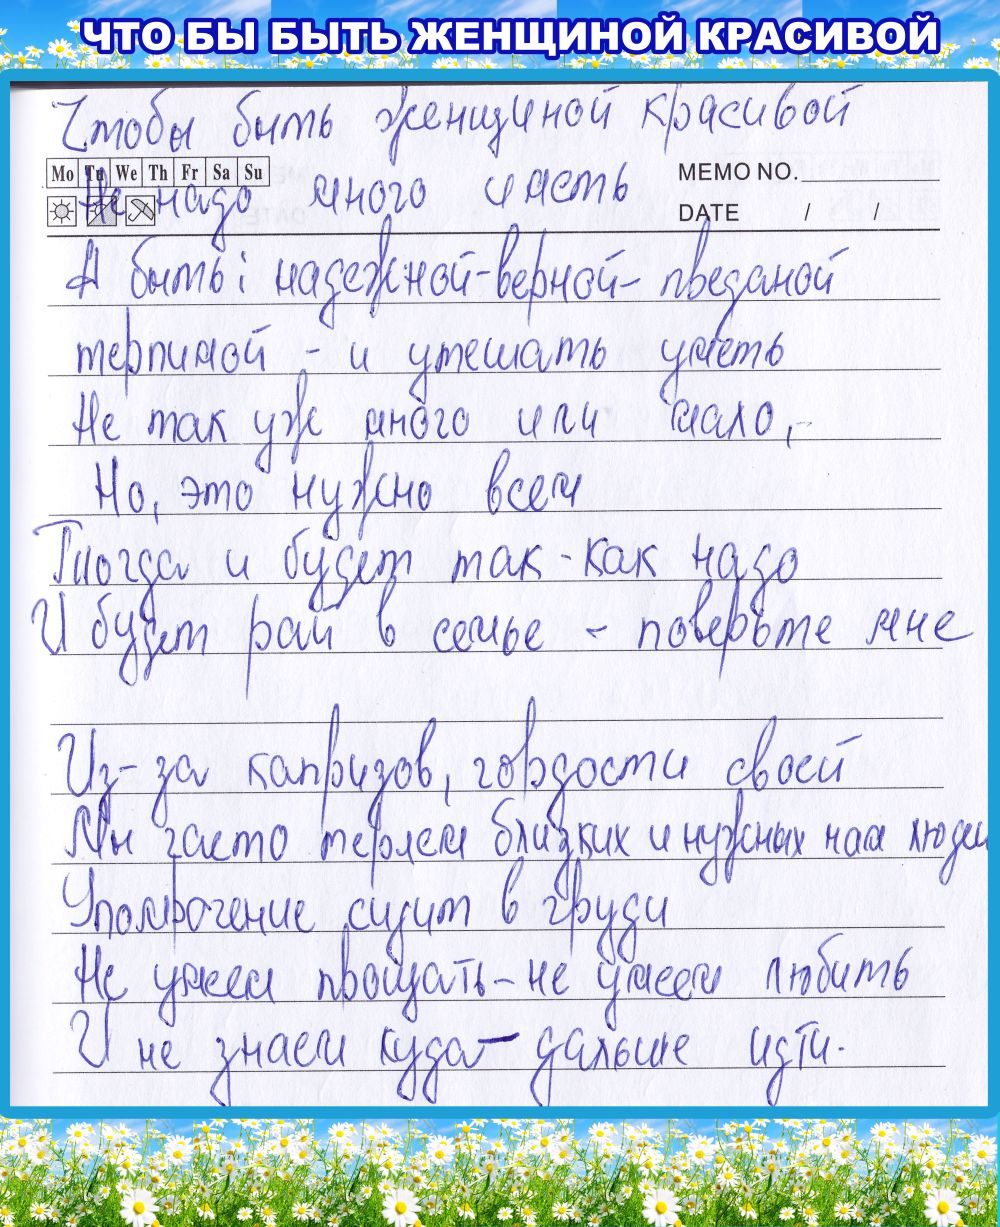 ЧТО БЫ БЫТЬ ЖЕНЩИНОЙ КРАСИВОЙ
Чтобы быть женщиной красивой
Mo Tu We Th Fr Sa Su
MEMO NO.
Не надо много часть
DATE / /
А быть: надежной-верной- преданой
терпимой - и утешать уметь
Не так уж много или мало,
Но, это нужно всем
Тогда и будет так-как надо
И будет рай в семье - поверьте мне
Из-за капризов, гордости своей
Мы часто теряем близких и нужных нам людей
Упомрочение сидит в груди
Не умеем прощать-не умеем любить
И не знаем куда-дальше идти.